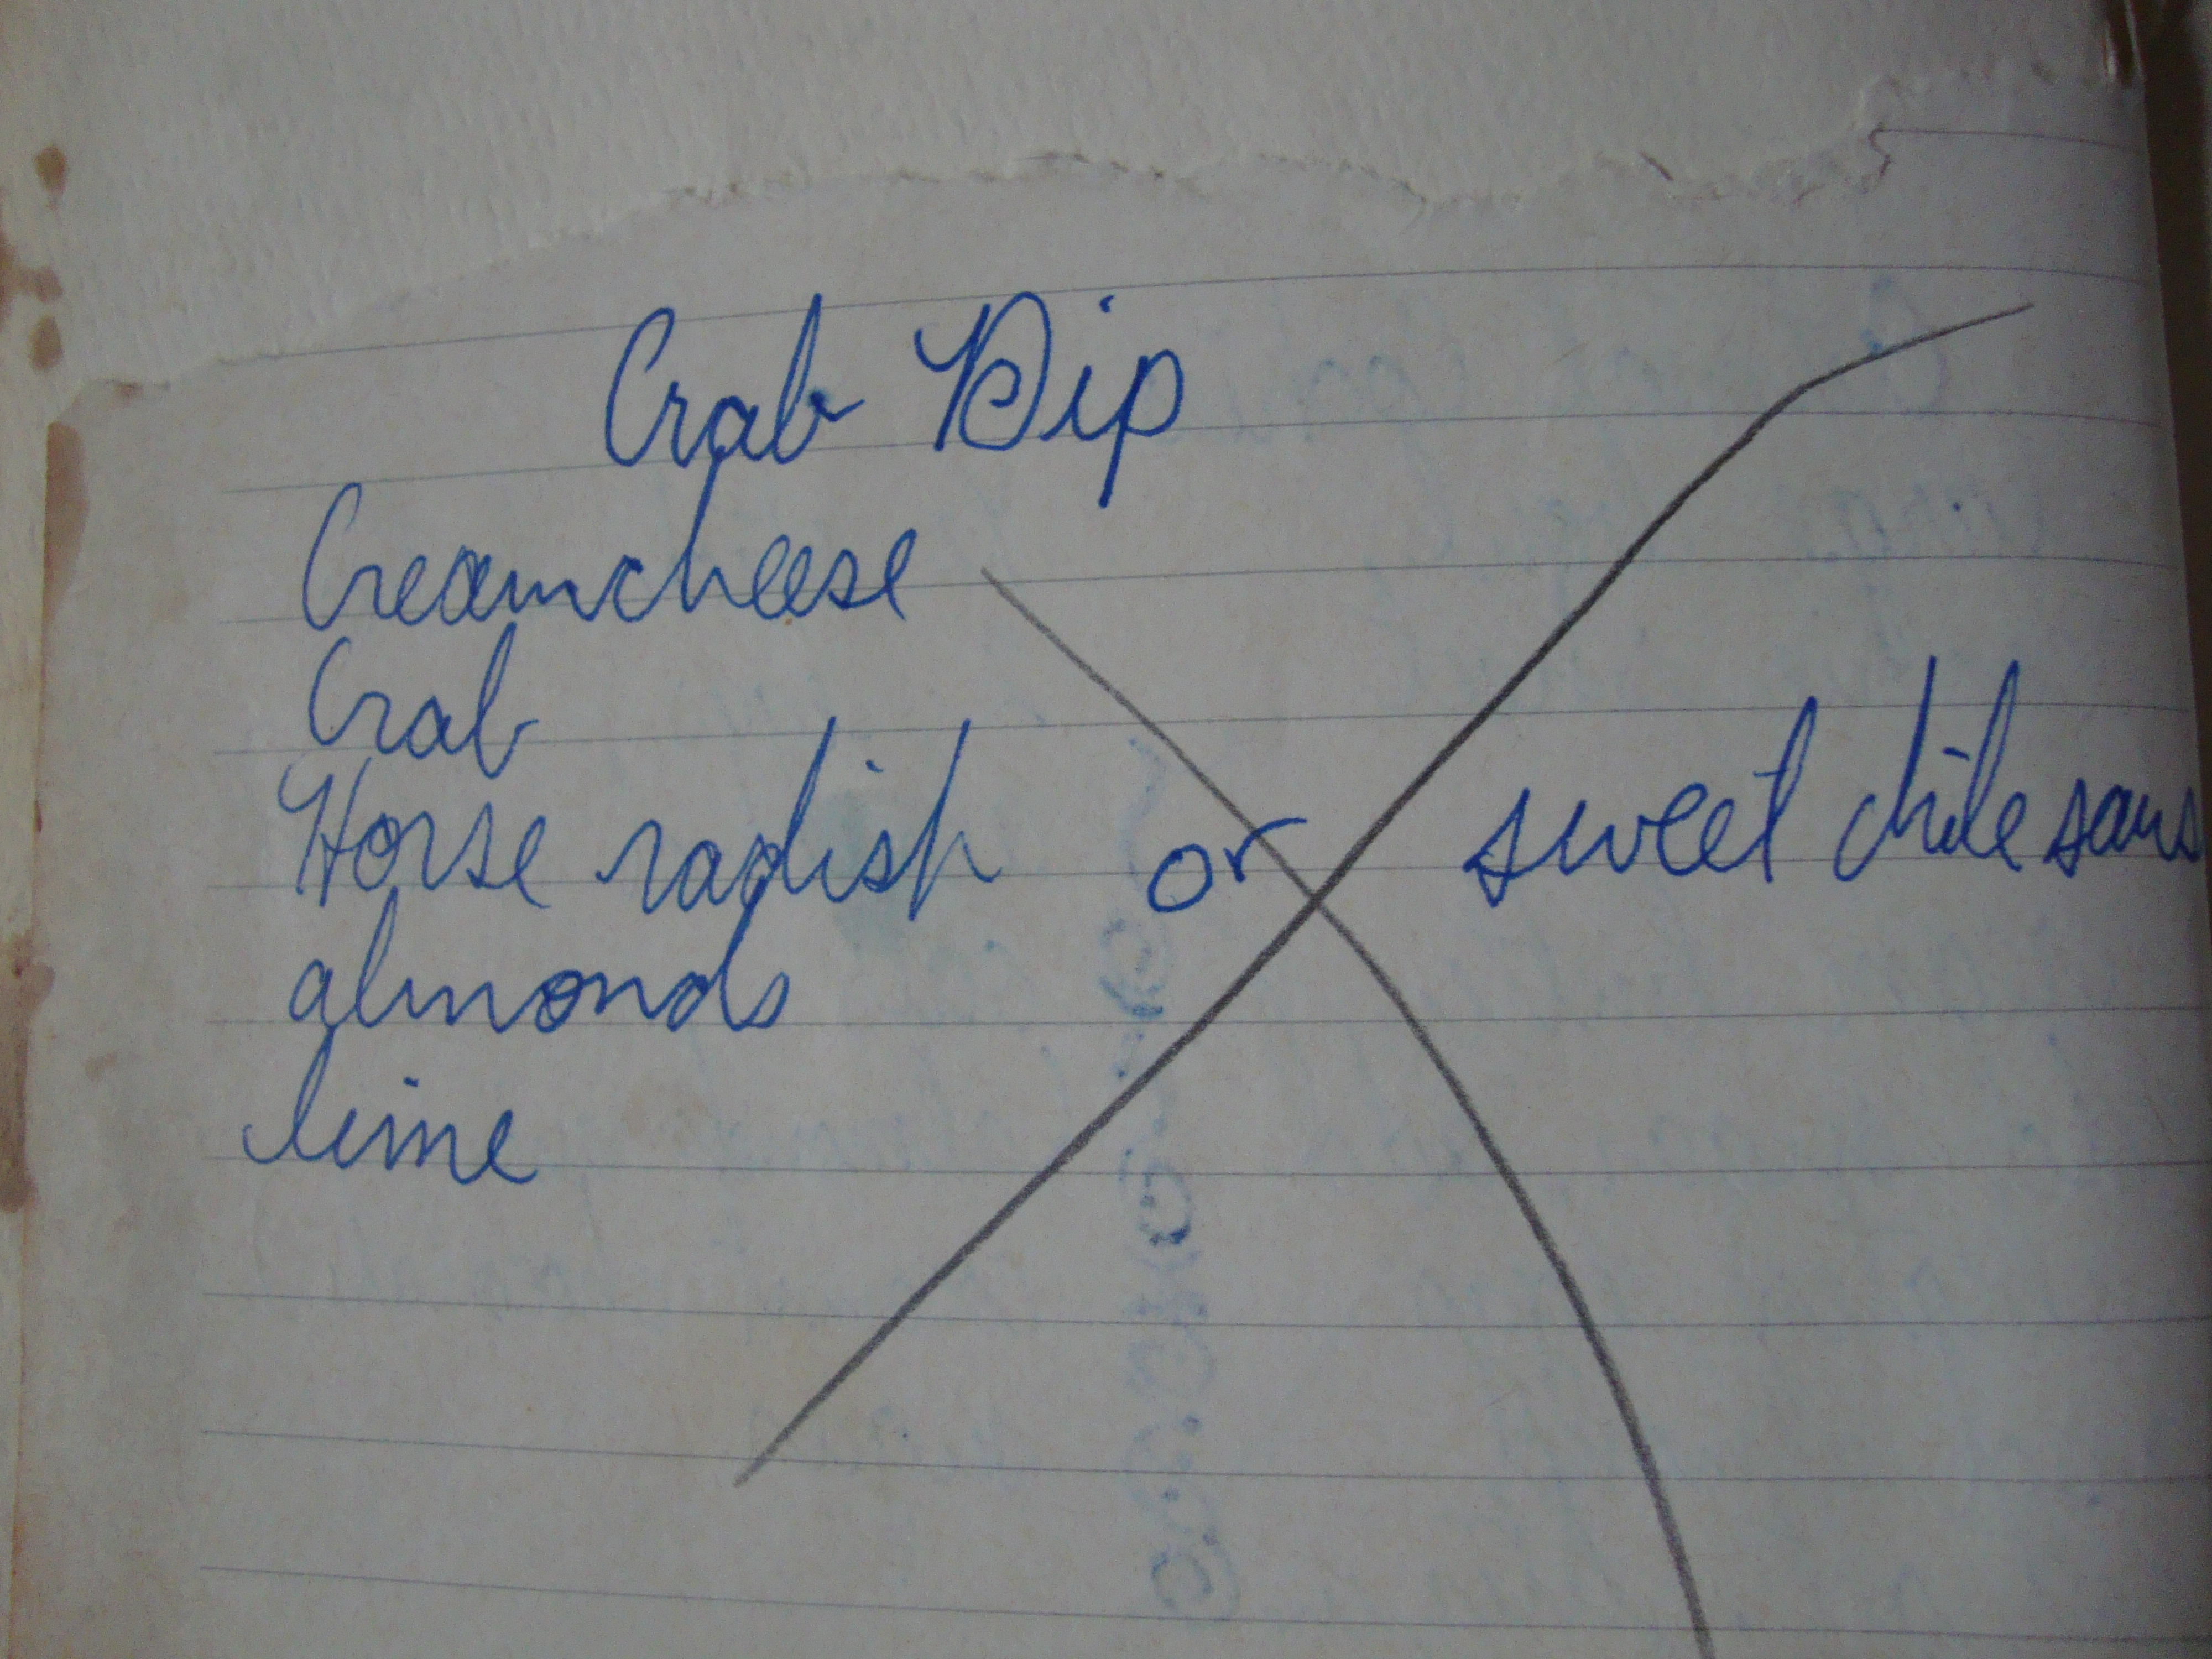 Crab Dip
Creamcheese
Crab
Horse radish or sweet chile saus
almonds
lime